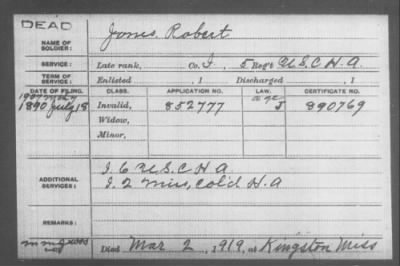 DEAD
NAME OF SOLDIER: Jones Robert
SERVICE: Late rank, Co. I, 5 Reg't U.S.C.H.A.
TERM OF SERVICE: Enlisted , 1 Discharged , 1
DATE OF FILING. CLASS. APPLICATION NO. LAW. CERTIFICATE NO.
1907 May age
1890 July 18 Invalid, 852777 J 890769
Widow,
Minor,
ADDITIONAL SERVICES: I. 6 U.S.C.H.A.
I. 2 Miss, Col'd H.A.
REMARKS:
Died Mar 2, 1919, at Kingston Miss